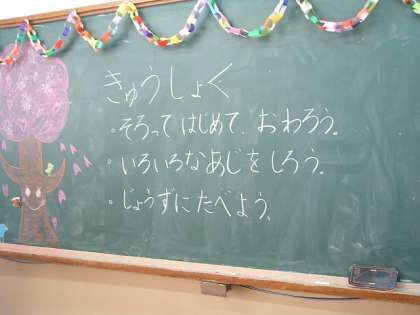 きゅうしょく
。そろって はじめて、おわろう。
。いろいろなあじをしろう。
。じょうずにたべよう、